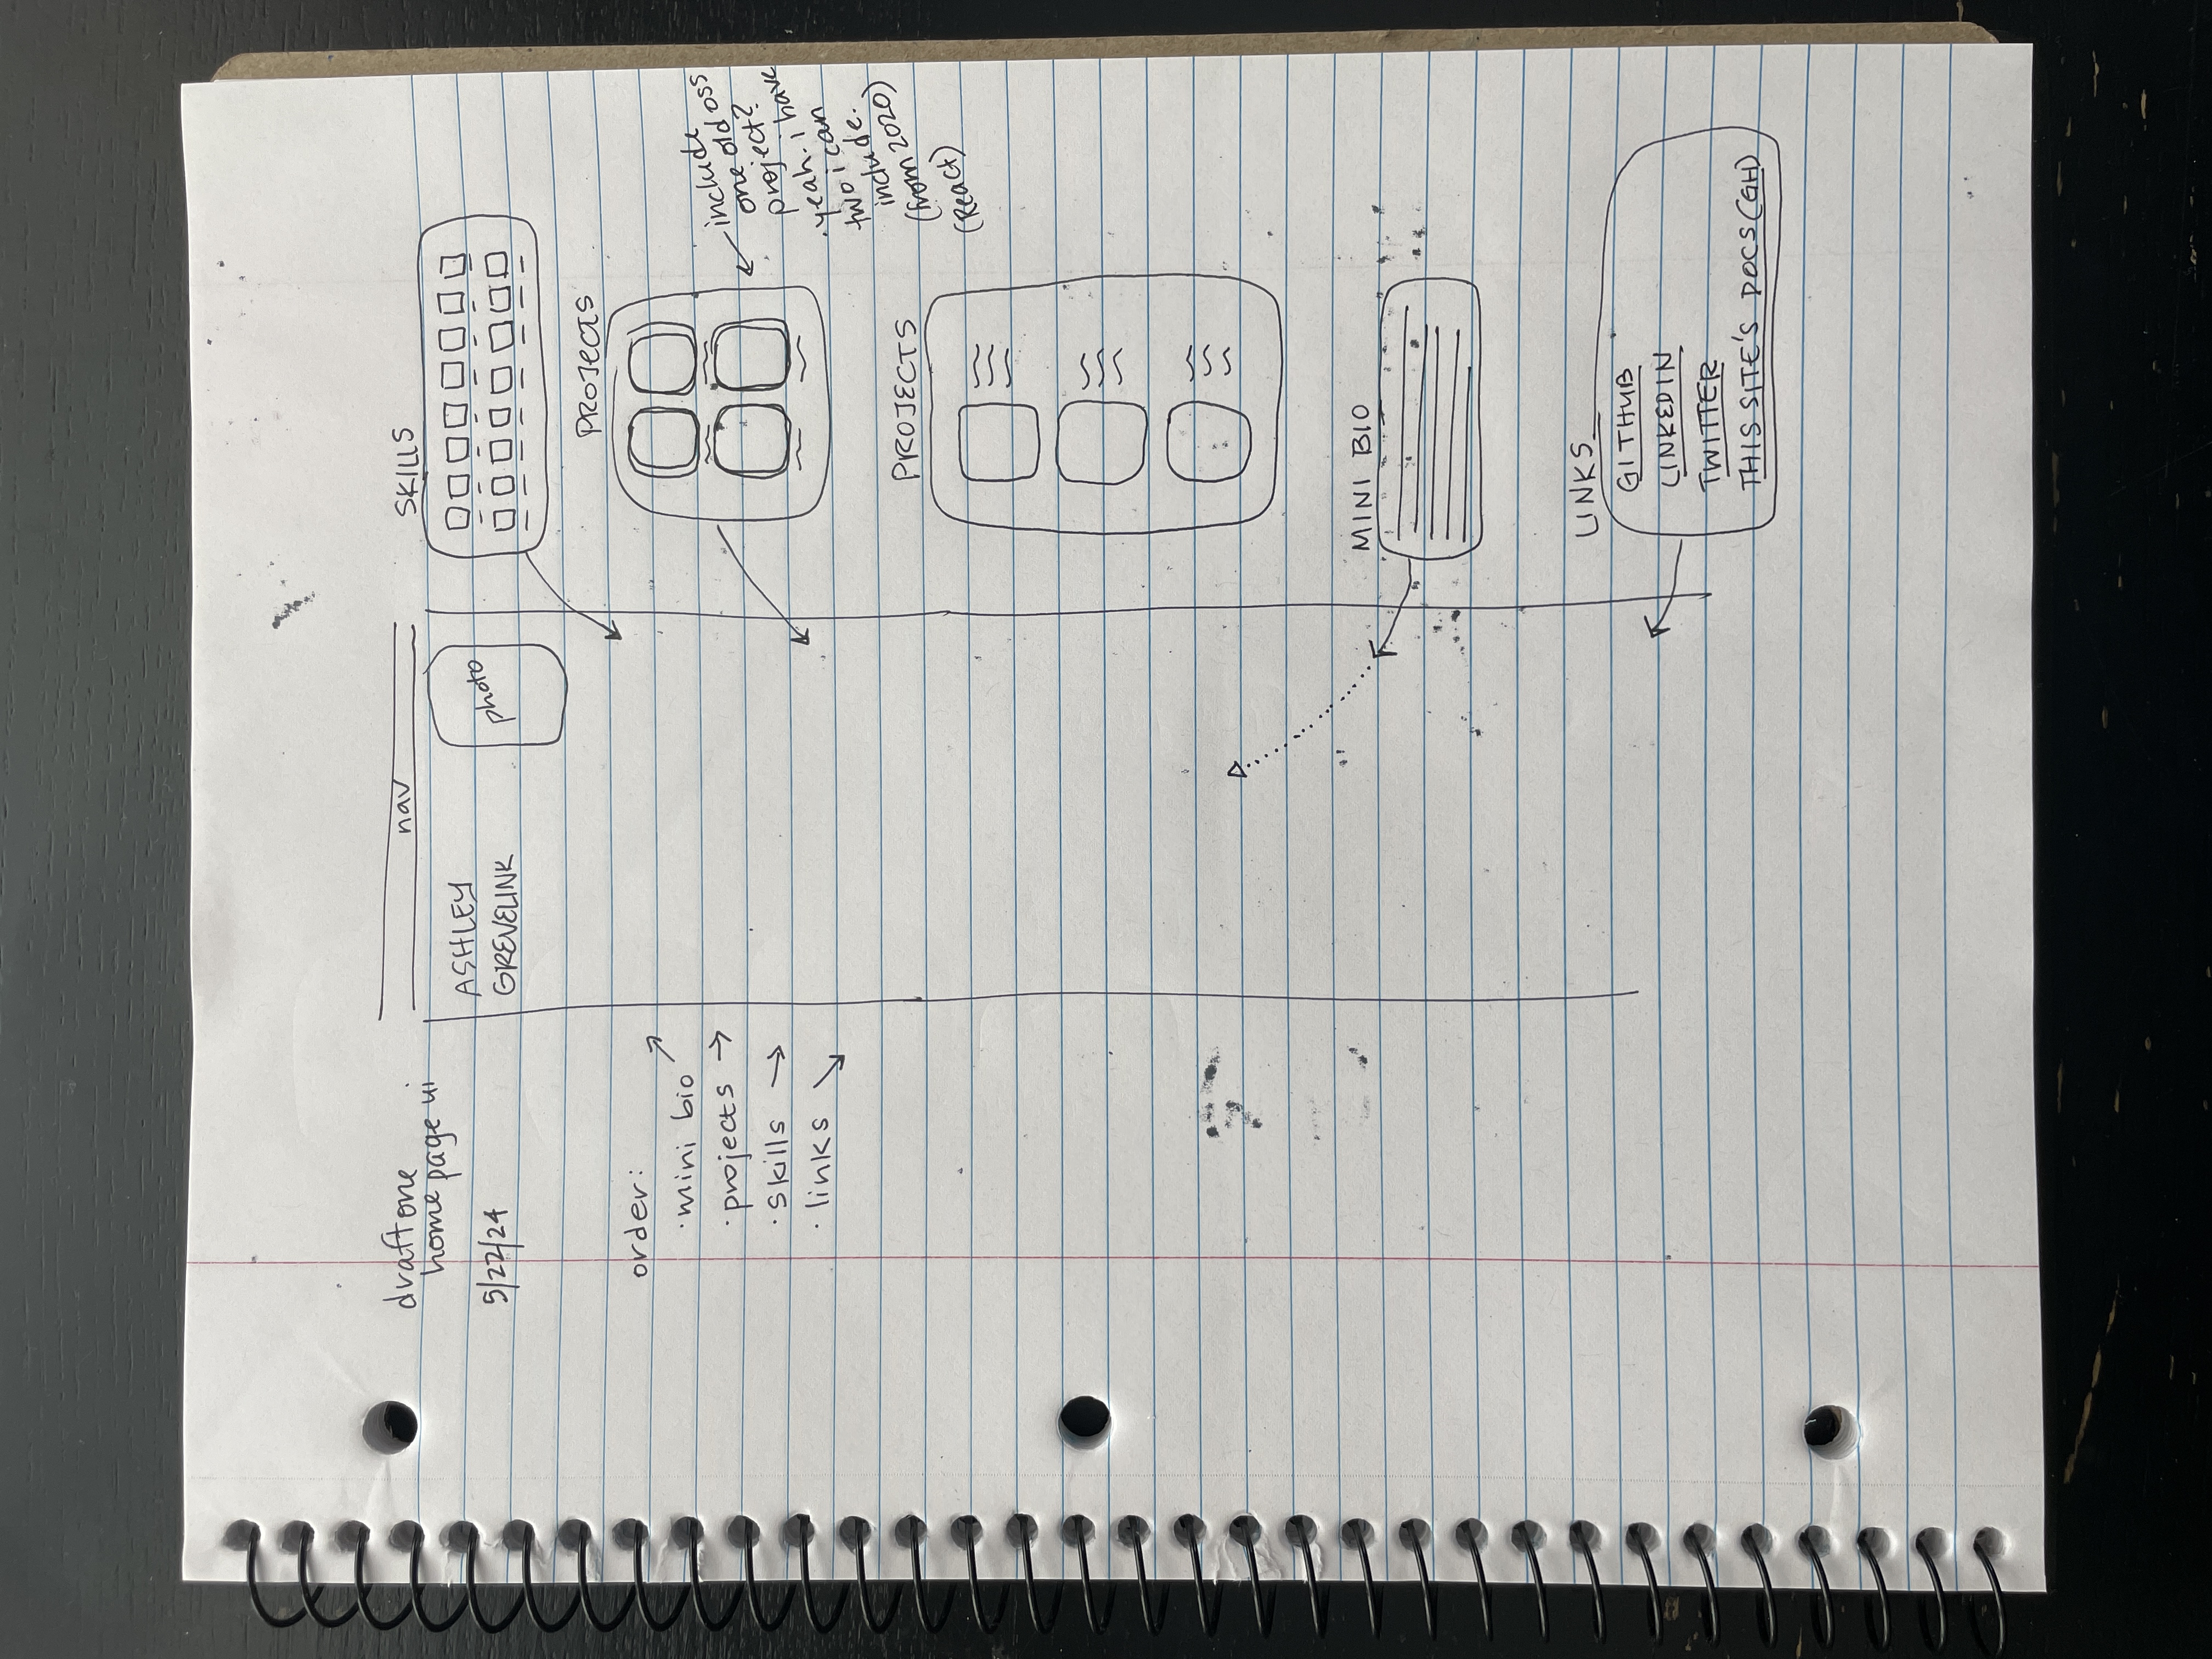 draft one
home page ui
5/22/24
order:
· mini bio
· projects
· skills
· links
nav
ASHLEY
GREVELINK
photo
SKILLS
PROJECTS
include
one old oss
project?
· yeah. i have
two i can
include.
(from 2020)
(React)
PROJECTS
MINI BIO
LINKS
GITHUB
LINKEDIN
TWITTER
THIS SITE'S DOCS (GH)